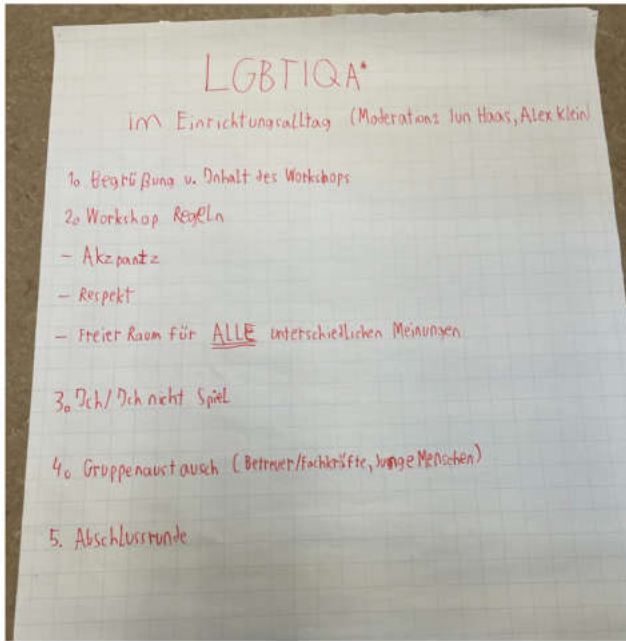 LGBTIQA*
im Einrichtungsalltag (Moderation: Jun Haas, Alex Klein)
1. Begrüßung u. Inhalt des Workshops
2. Workshop Regeln
- Akzpantz
- Respekt
- Freier Raum für ALLE unterschiedlichen Meinungen
3. Ich/Ich nicht Spiel
4. Gruppenaustausch (Betreuer/Fachkräfte, Junge Menschen)
5. Abschlussrunde